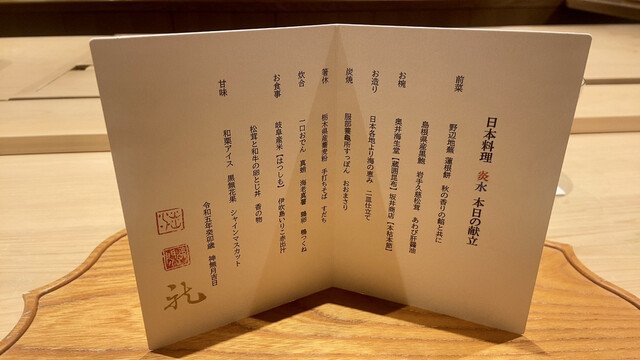 日本料理 炎水 本日の献立
前菜
野辺地蕪 蓮根餅 秋の香りの餡と共に
島根県産黒鮑 岩手久慈松茸 あわび肝醤油
お椀
奥井海生堂【蔵囲昆布】 坂井商店【本枯本節】
お造り
日本各地より海の恵み 二皿仕立て
炭燒
服部養亀所すっぽん おおまさり
箸休
栃木県産蕎麦粉 手打ちそば すだち
炊合
一口おでん 真蛸 海老真薯 鶉卵 鴨つくね
お食事
岐阜産米【はつしも】 伊吹島いりこ赤出汁
松茸と和牛の卵とじ丼 香の物
甘味
和栗アイス 黒無花果 シャインマスカット
令和五年癸卯歳 神無月吉日